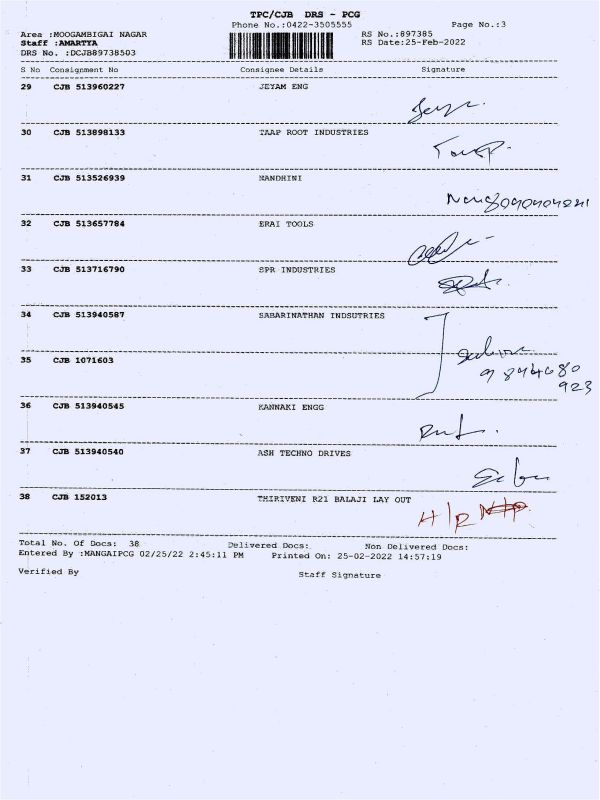 TPC/CJB DRS - PCG
Phone No.:0422-3505555 Page No.:3
Area :MOOGAMBIGAI NAGAR RS No.:897385
Staff :AMARTYA RS Date:25-Feb-2022
DRS No. :DCJB89738503
S No Consignment No Consignee Details Signature
29 CJB 513960227 JEYAM ENG
30 CJB 513898133 TAAP ROOT INDUSTRIES
31 CJB 513526939 NANDHINI
32 CJB 513657784 ERAI TOOLS
33 CJB 513716790 SPR INDUSTRIES
34 CJB 513940587 SABARINATHAN INDSUTRIES
35 CJB 1071603
923
36 CJB 513940545 KANNAKI ENGG
37 CJB 513940540 ASH TECHNO DRIVES
38 CJB 152013 THIRIVENI R21 BALAJI LAY OUT
Total No. Of Docs: 38 Delivered Docs: Non Delivered Docs:
Entered By :MANGAIPCG 02/25/22 2:45:11 PM Printed On: 25-02-2022 14:57:19
Verified By Staff Signature